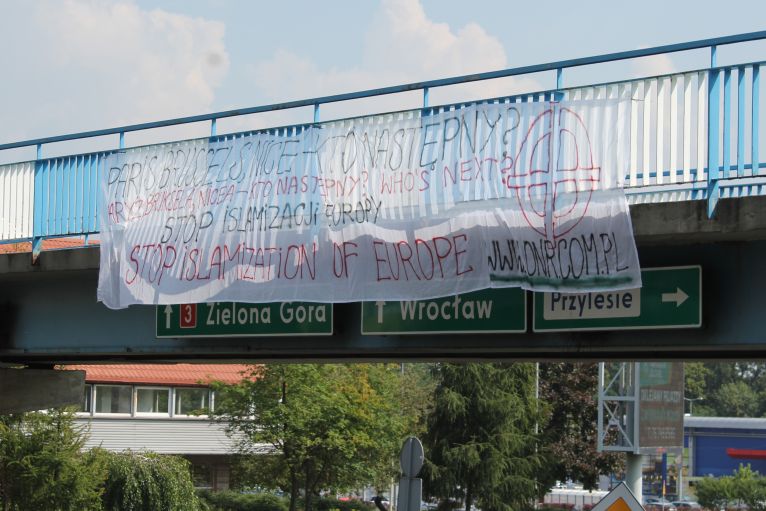 PARIS BRUKSELS NICE - KTO NASTĘPNY?
PARYŻ, BRUKSELA, NICEA - KTO NASTĘPNY? WHO'S NEXT?
STOP ISLAMIZACJI EUROPY
STOP ISLAMIZATION OF EUROPE
WWW.ONR.COM.PL
3 Zielona Góra
Wrocław
Przylesie